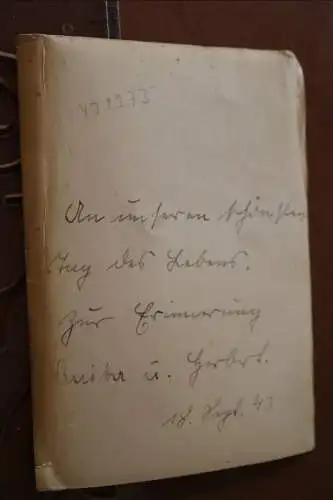 491973
An unseren schönsten
Tag des Lebens.
Zur Erinnerung
Anita u. Herbert.
18. Sept. 43